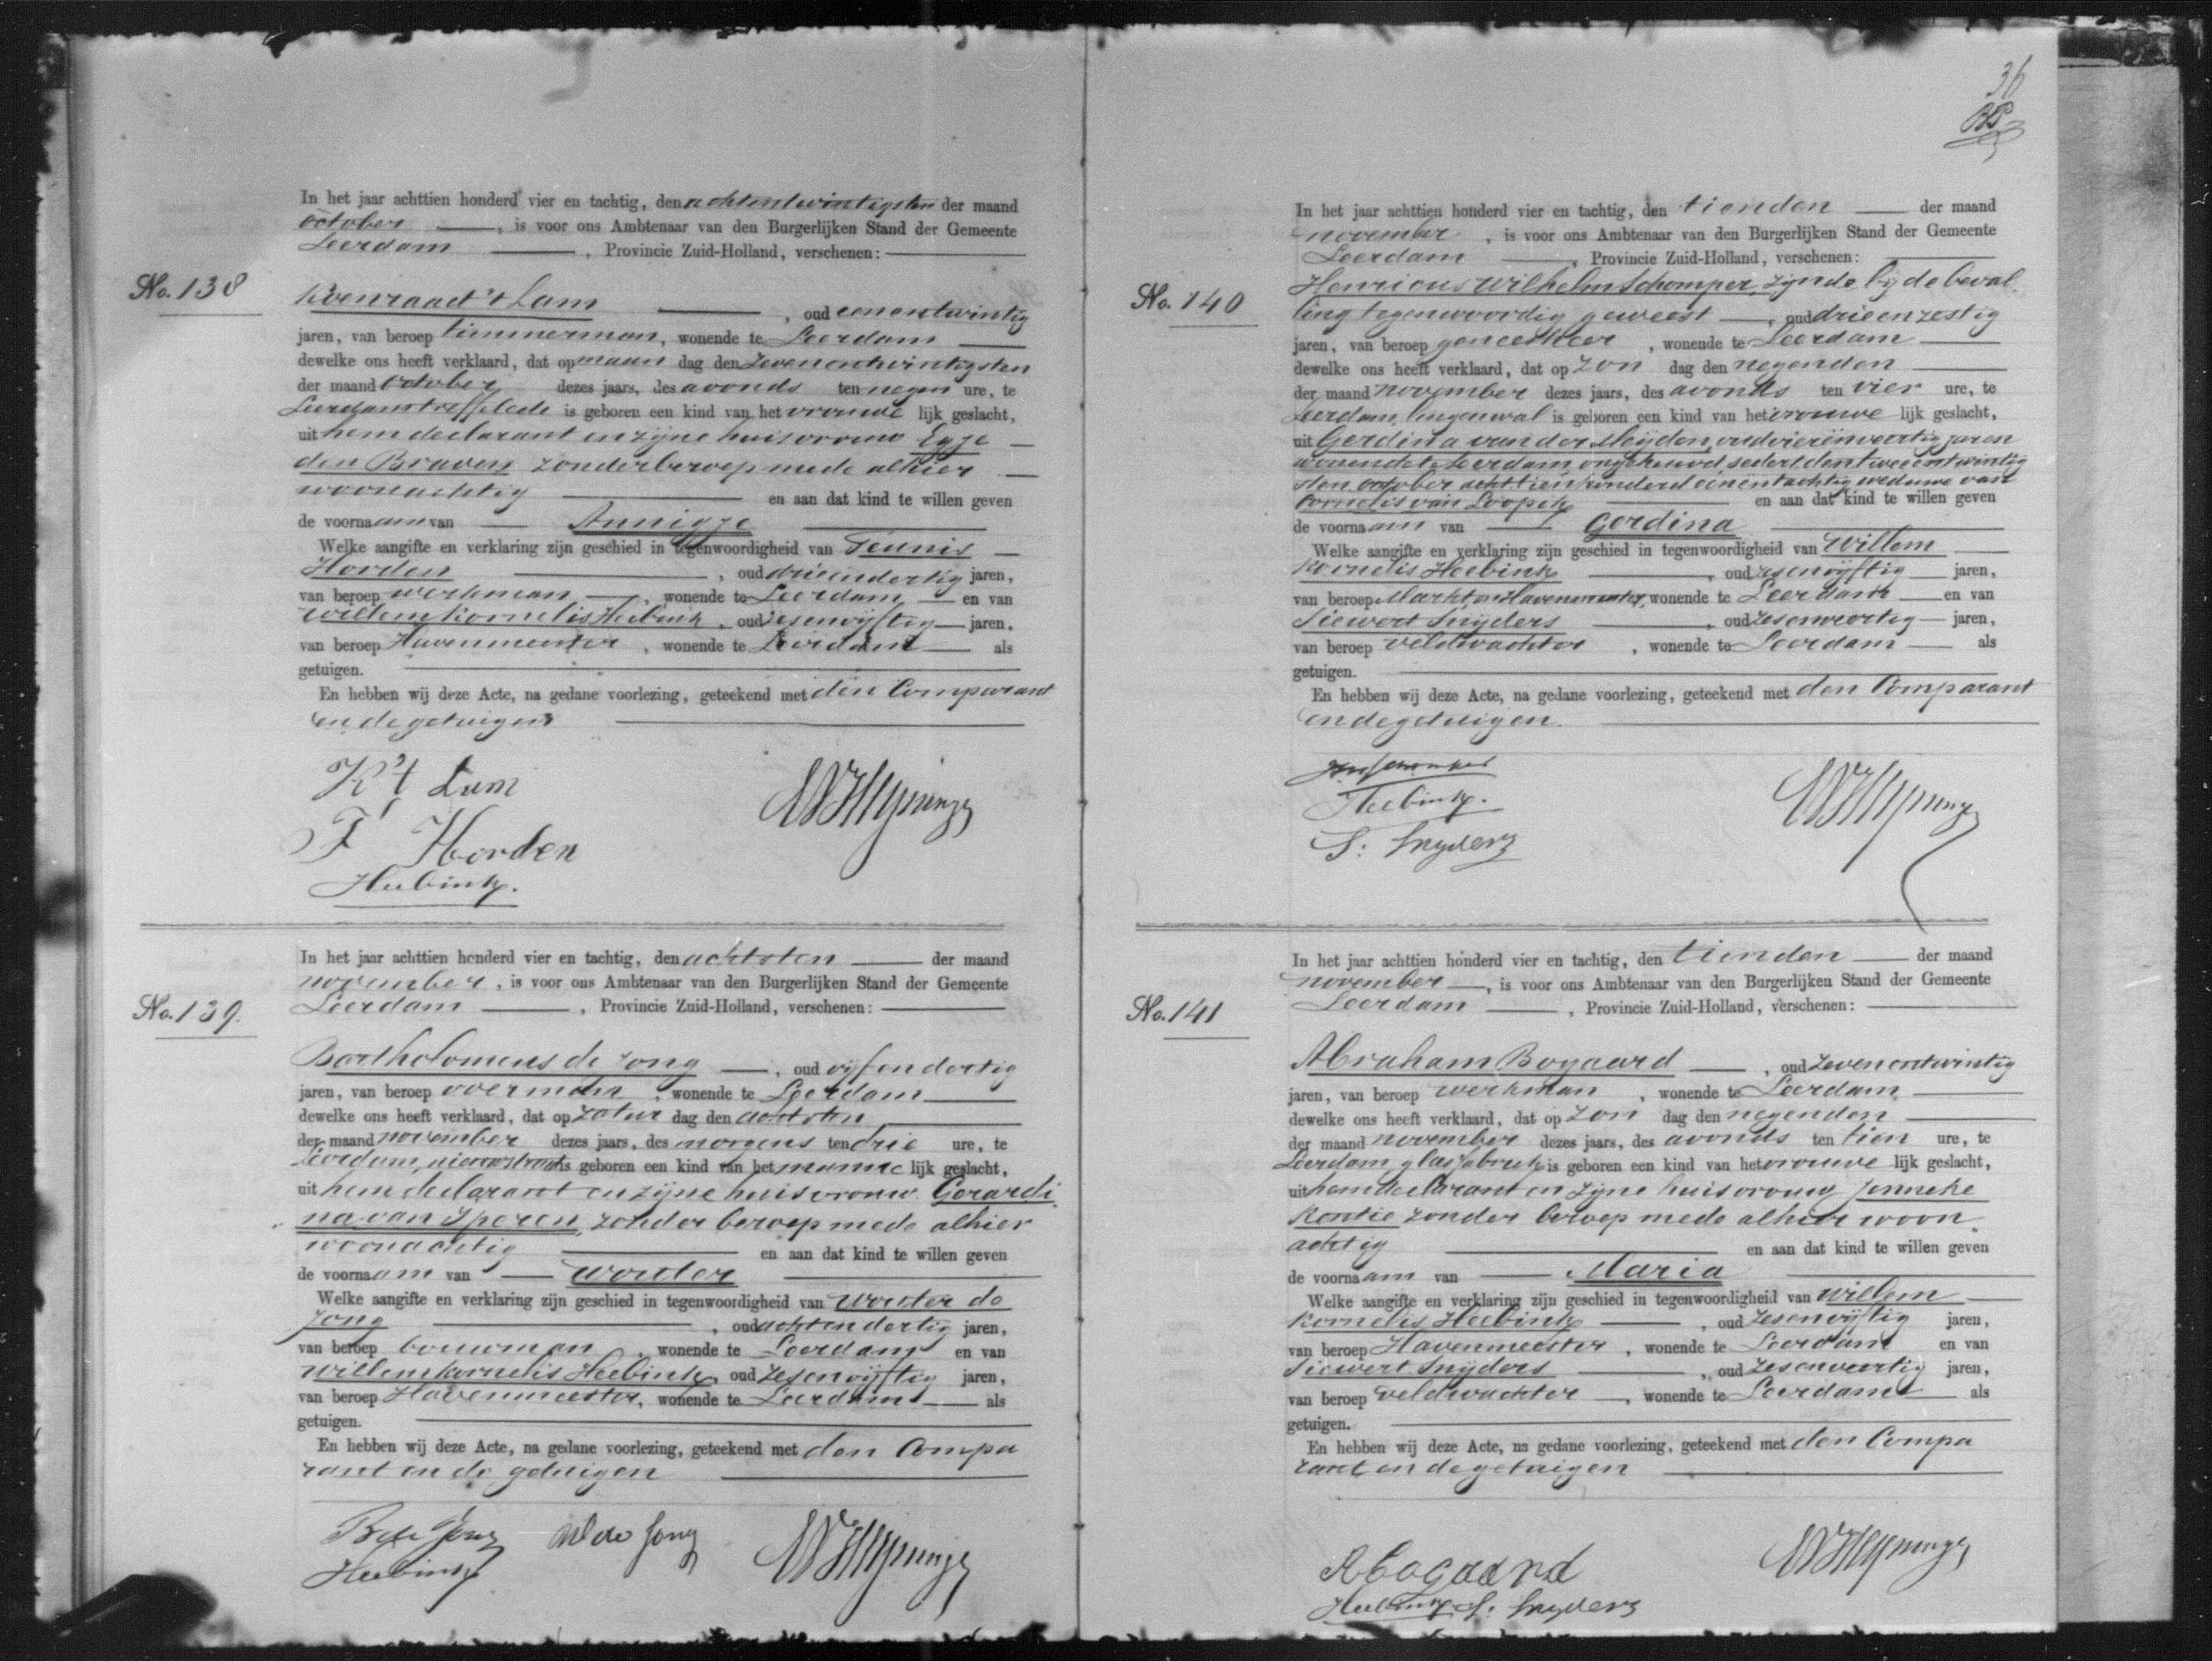 In het jaar achttien honderd vier en tachtig, den achtentwintigsten der maand
october, is voor ons Ambtenaar van den Burgerlijken Stand der Gemeente
Leerdam, Provincie Zuid-Holland, verschenen:
No. 138
Koenraad 't Lam, oud eenentwintig
jaren, van beroep timmerman, wonende te Leerdam
dewelke ons heeft verklaard, dat op maandag den zevenentwintigsten
der maand october dezes jaars, des avonds ten negen ure, te
is geboren een kind van het vrouwelijk geslacht,
uit hem declarant en zijne huisvrouw Egje
den Braven zonder beroep mede alhier
woonachtig en aan dat kind te willen geven
de voornaam van Annigje
Welke aangifte en verklaring zijn geschied in tegenwoordigheid van Teunis
Horden, oud drieendertig jaren,
van beroep werkman, wonende te Leerdam en van
Willem Kornelis Heebink, oud zesenvijftig jaren,
van beroep Havenmeester, wonende te Leerdam als
getuigen.
En hebben wij deze Acte, na gedane voorlezing, geteekend met den Comparant
en de getuigen
K 't Lam
T Horden
Heebink.
In het jaar achttien honderd vier en tachtig, den achtsten der maand
november, is voor ons Ambtenaar van den Burgerlijken Stand der Gemeente
Leerdam, Provincie Zuid-Holland, verschenen:
No. 139.
Bartholomeus de Jong, oud vijfendertig
jaren, van beroep voerman, wonende te Leerdam
dewelke ons heeft verklaard, dat op zaturdag den achtsten
der maand november dezes jaars, des morgens ten drie ure, te
Leerdam, nieuwstraat is geboren een kind van het mannelijk geslacht,
uit hem declarant en zijne huisvrouw Gerardi
na van Iperen, zonder beroep mede alhier
woonachtig en aan dat kind te willen geven
de voornaam van Wouter
Welke aangifte en verklaring zijn geschied in tegenwoordigheid van Wouter de
Jong, oud achtendertig jaren,
van beroep bouwman, wonende te Leerdam en van
Willem Kornelis Heebink, oud zesenvijftig jaren,
van beroep Havenmeester, wonende te Leerdam als
getuigen.
En hebben wij deze Acte, na gedane voorlezing, geteekend met den Compa
rant en de getuigen
B de Jong W de Jong
Heebink
36
In het jaar achttien honderd vier en tachtig, den tienden der maand
november, is voor ons Ambtenaar van den Burgerlijken Stand der Gemeente
Leerdam, Provincie Zuid-Holland, verschenen:
No. 140
Henricus Wilhelm Schomper, zijnde bij de beval
ling tegenwoordig geweest, oud drieenzestig
jaren, van beroep geneesheer, wonende te Leerdam
dewelke ons heeft verklaard, dat op zondag den negenden
der maand november dezes jaars, des avonds ten vier ure, te
Leerdam, lingenwal is geboren een kind van het vrouwelijk geslacht,
uit Gerdina van der Meijden, oud vierenveertig jaren
wonende te Leerdam, ongehuwd, sedert den tweeentwintig
sten october achttienhonderd eenentachtig weduwe van
Cornelis van Loopik en aan dat kind te willen geven
de voornaam van Gerdina
Welke aangifte en verklaring zijn geschied in tegenwoordigheid van Willem
Kornelis Heebink, oud zesenvijftig jaren,
van beroep Markt en Havenmeester, wonende te Leerdam en van
Siewert Snijders, oud zesenveertig jaren,
van beroep veldwachter, wonende te Leerdam als
getuigen.
En hebben wij deze Acte, na gedane voorlezing, geteekend met den Comparant
en de getuigen.
Heebink.
S: Snyders
In het jaar achttien honderd vier en tachtig, den tienden der maand
november, is voor ons Ambtenaar van den Burgerlijken Stand der Gemeente
Leerdam, Provincie Zuid-Holland, verschenen:
No. 141
Abraham Bogaard, oud zevenentwintig
jaren, van beroep werkman, wonende te Leerdam
dewelke ons heeft verklaard, dat op zondag den negenden
der maand november dezes jaars, des avonds ten tien ure, te
Leerdam, glasfabriek is geboren een kind van het vrouwelijk geslacht,
uit hem declarant en zijne huisvrouw Jenneke
Kentie zonder beroep mede alhier woon
achtig en aan dat kind te willen geven
de voornaam van Maria
Welke aangifte en verklaring zijn geschied in tegenwoordigheid van Willem
Kornelis Heebink, oud zesenvijftig jaren,
van beroep Havenmeester, wonende te Leerdam en van
Siewert Snijders, oud zesenveertig jaren,
van beroep veldwachter, wonende te Leerdam als
getuigen.
En hebben wij deze Acte, na gedane voorlezing, geteekend met den Compa
rant en de getuigen
A Bogaard
Heebink S: Snyders